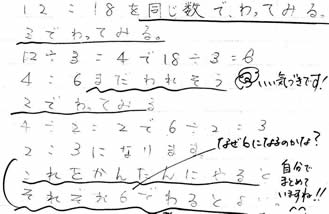 12:18を同じ数で、わってみる。
3でわってみる。
12÷3=4で18÷3=6
4:6まだわれそう いい気づきです!
2でわってみる
4÷2=2で6÷2=3
2:3になります。 なぜ6になるのかな?
これをかんたんにやると
それぞれ6でわるとよ
自分で
まとめて
いますね!!